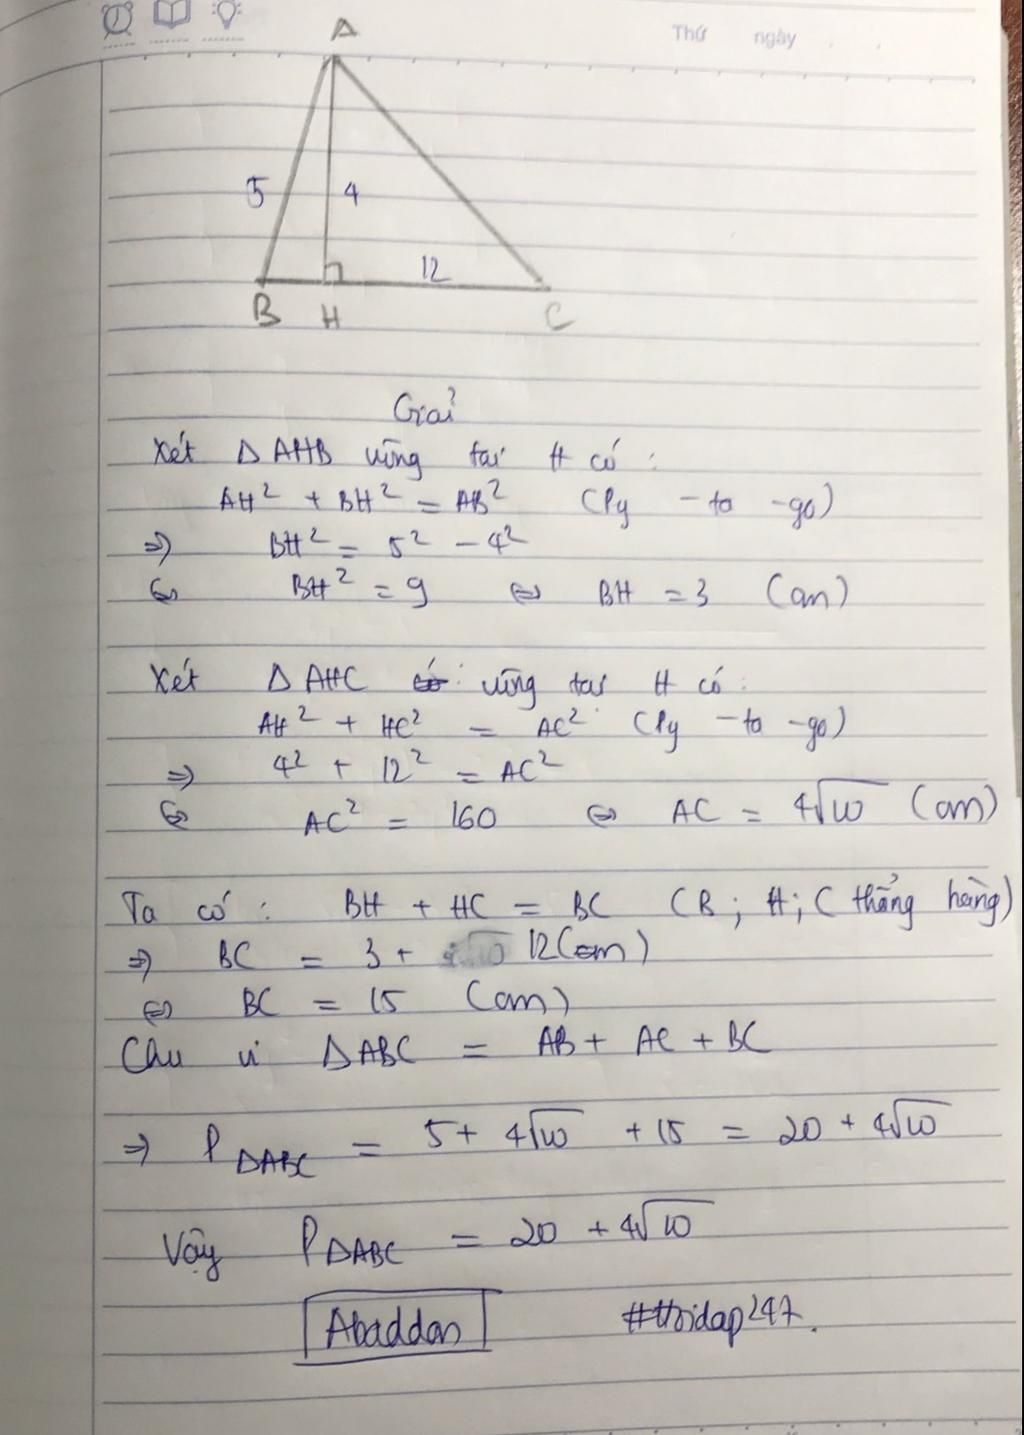 Thứ ngày
A
5 4
12
B H C
Giải
Xét Δ AHB vuông tại H có :
AH² + BH² = AB² (Py - ta - go)
⇒ BH² = 5² - 4²
⇔ BH² = 9 ⇔ BH = 3 (cm)
Xét Δ AHC có : vuông tại H có :
AH² + HC² = AC² (Py - ta - go)
⇒ 4² + 12² = AC²
⇔ AC² = 160 ⇔ AC = 4√10 (cm)
Ta có : BH + HC = BC (B ; H ; C thẳng hàng)
⇒ BC = 3 + 12 (cm)
⇔ BC = 15 (cm)
Chu vi ΔABC = AB + AC + BC
⇒ P ΔABC = 5 + 4√10 + 15 = 20 + 4√10
Vậy P ΔABC = 20 + 4√10
Abaddon #hoidap247.